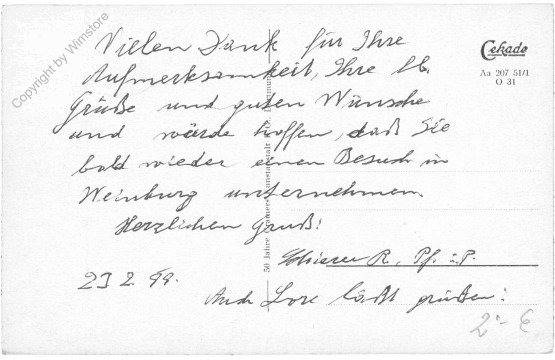 Copyright by Wimstore
Vielen Dank für Ihre
Aufmerksamkeit, Ihre lb.
Grüße und guten Wünsche
und würde hoffen, daß Sie
bald wieder einen Besuch in
Weinburg unternehmen.
Herzlichen Gruß!
R., Pf. i. P.
23 2. 99.
Auch Lore läßt grüßen!
Cekade
Aa 207 51/1
O 31
50 Jahre Cramers Kunstanstalt Dortmund
2.- €